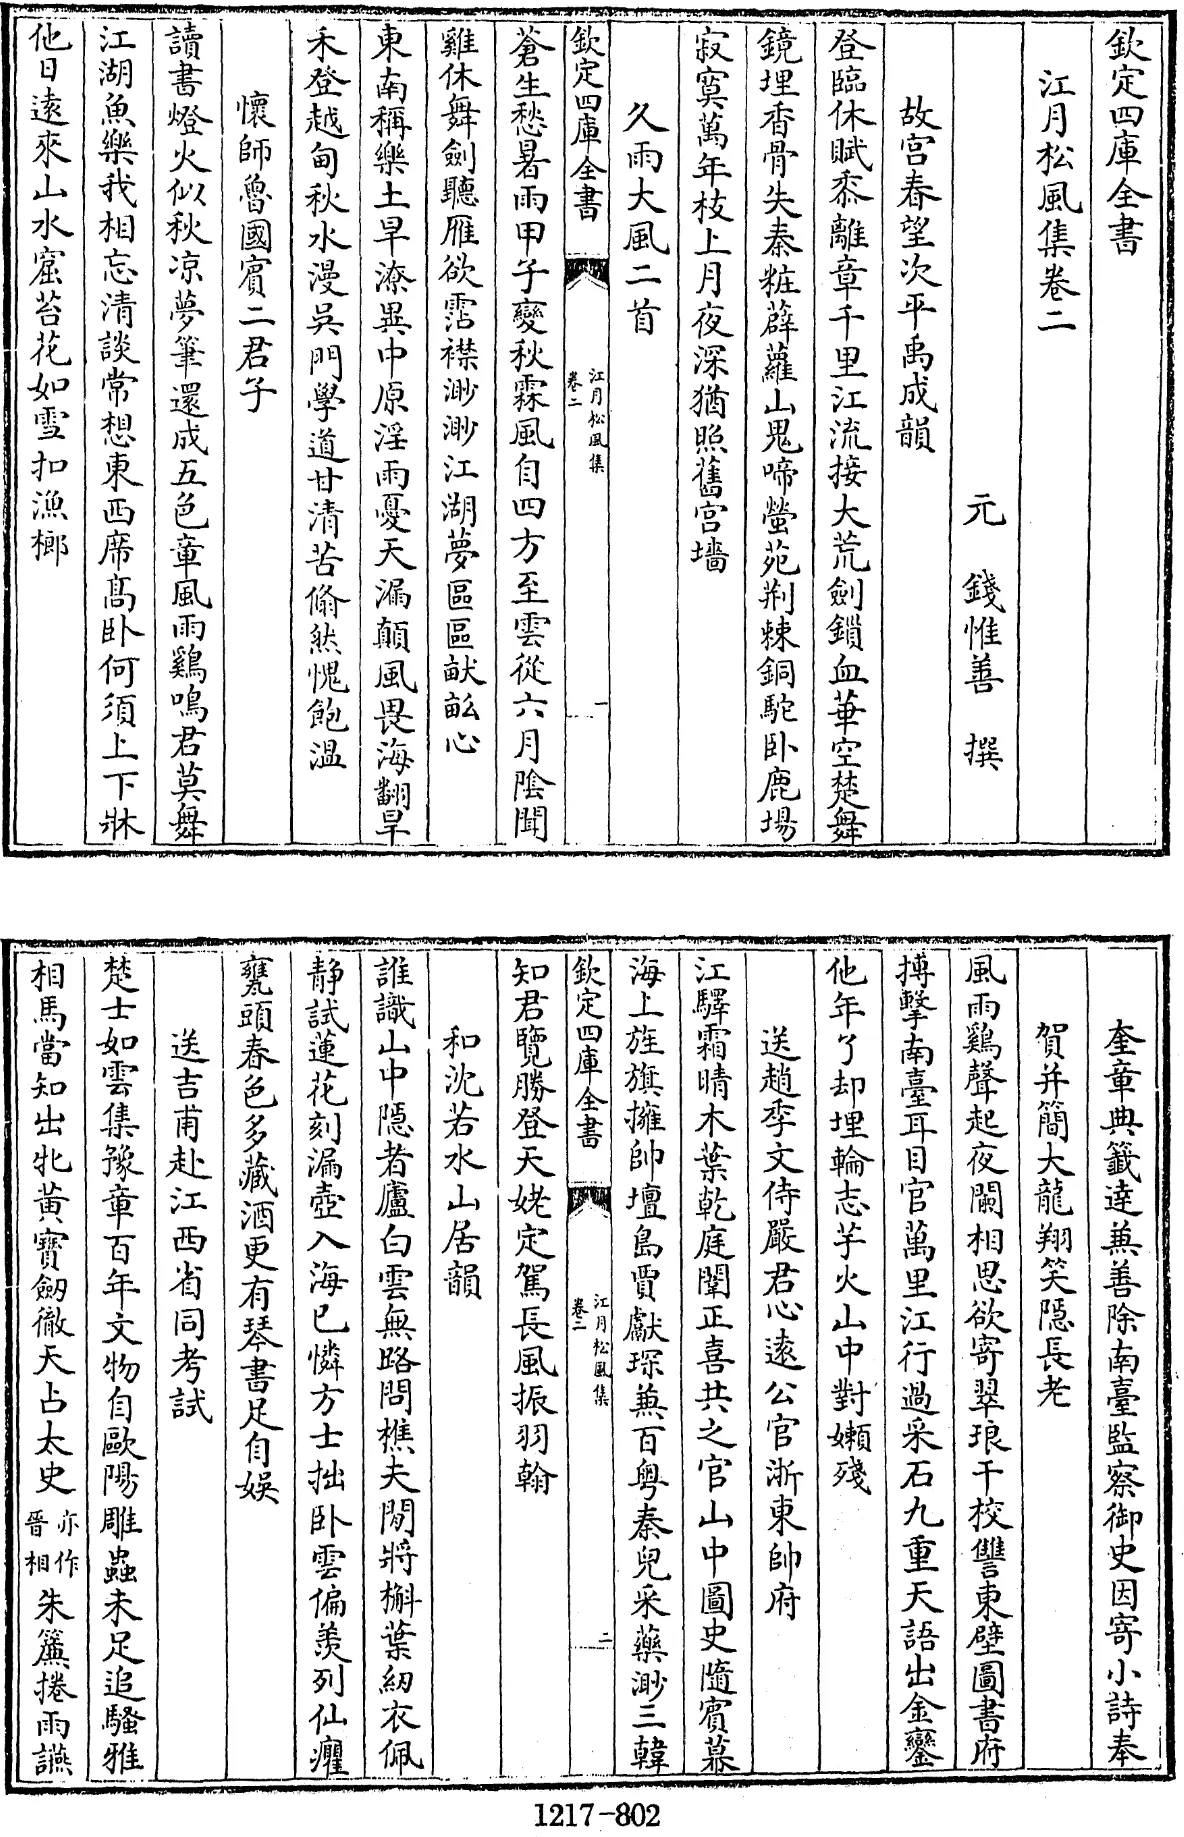 欽定四庫全書
江月松風集卷二
元　錢惟善　撰
故宮春望次平禹成韻
登臨休賦黍離章千里江流接大荒劍鎖血華空楚舞
鏡埋香骨失秦粧薜蘿山鬼啼螢苑荆棘銅駝卧鹿場
寂寞萬年枝上月夜深猶照舊宮墻
久雨大風二首
欽定四庫全書
江月松風集
卷二
一
蒼生愁暑雨甲子變秋霖風自四方至雲從六月陰聞
雞休舞劍聽雁欲霑襟渺渺江湖夢區區畎畝心
東南稱樂土旱潦異中原淫雨憂天漏顛風畏海翻旱
禾登越甸秋水漫吳門學道甘清苦翛然愧飽温
懷師魯國賓二君子
讀書燈火似秋凉夢筆還成五色章風雨鷄鳴君莫舞
江湖魚樂我相忘清談常想東西席髙卧何須上下牀
他日逺來山水窟苔花如雪扣漁榔
奎章典籖逹兼善除南臺監察御史因寄小詩奉
賀并簡大龍翔笑隠長老
風雨鷄聲起夜闌相思欲寄翠琅干校讐東壁圖書府
搏擊南臺耳目官萬里江行過采石九重天語出金鑾
他年了却埋輪志芋火山中對嬾殘
送趙季文侍嚴君心逺公官浙東帥府
江驛霜晴木葉乾庭闈正喜共之官山中圖史隨賓幕
海上旌旗擁帥壇島賈獻琛兼百粤秦兒采藥渺三韓
欽定四庫全書
江月松風集
卷二
二
知君覽勝登天姥定駕長風振羽翰
和沈若水山居韻
誰識山中隠者廬白雲無路問樵夫閒將槲葉紉衣佩
靜試蓮花刻漏壺入海已憐方士拙卧雲偏羨列仙癯
甕頭春色多藏酒更有琴書足自娱
送吉甫赴江西省同考試
楚士如雲集豫章百年文物自歐陽雕蟲未足追騷雅
相馬當知出牝黃寶劒徹天占太史亦作晉相朱簾捲雨讌
1217-802